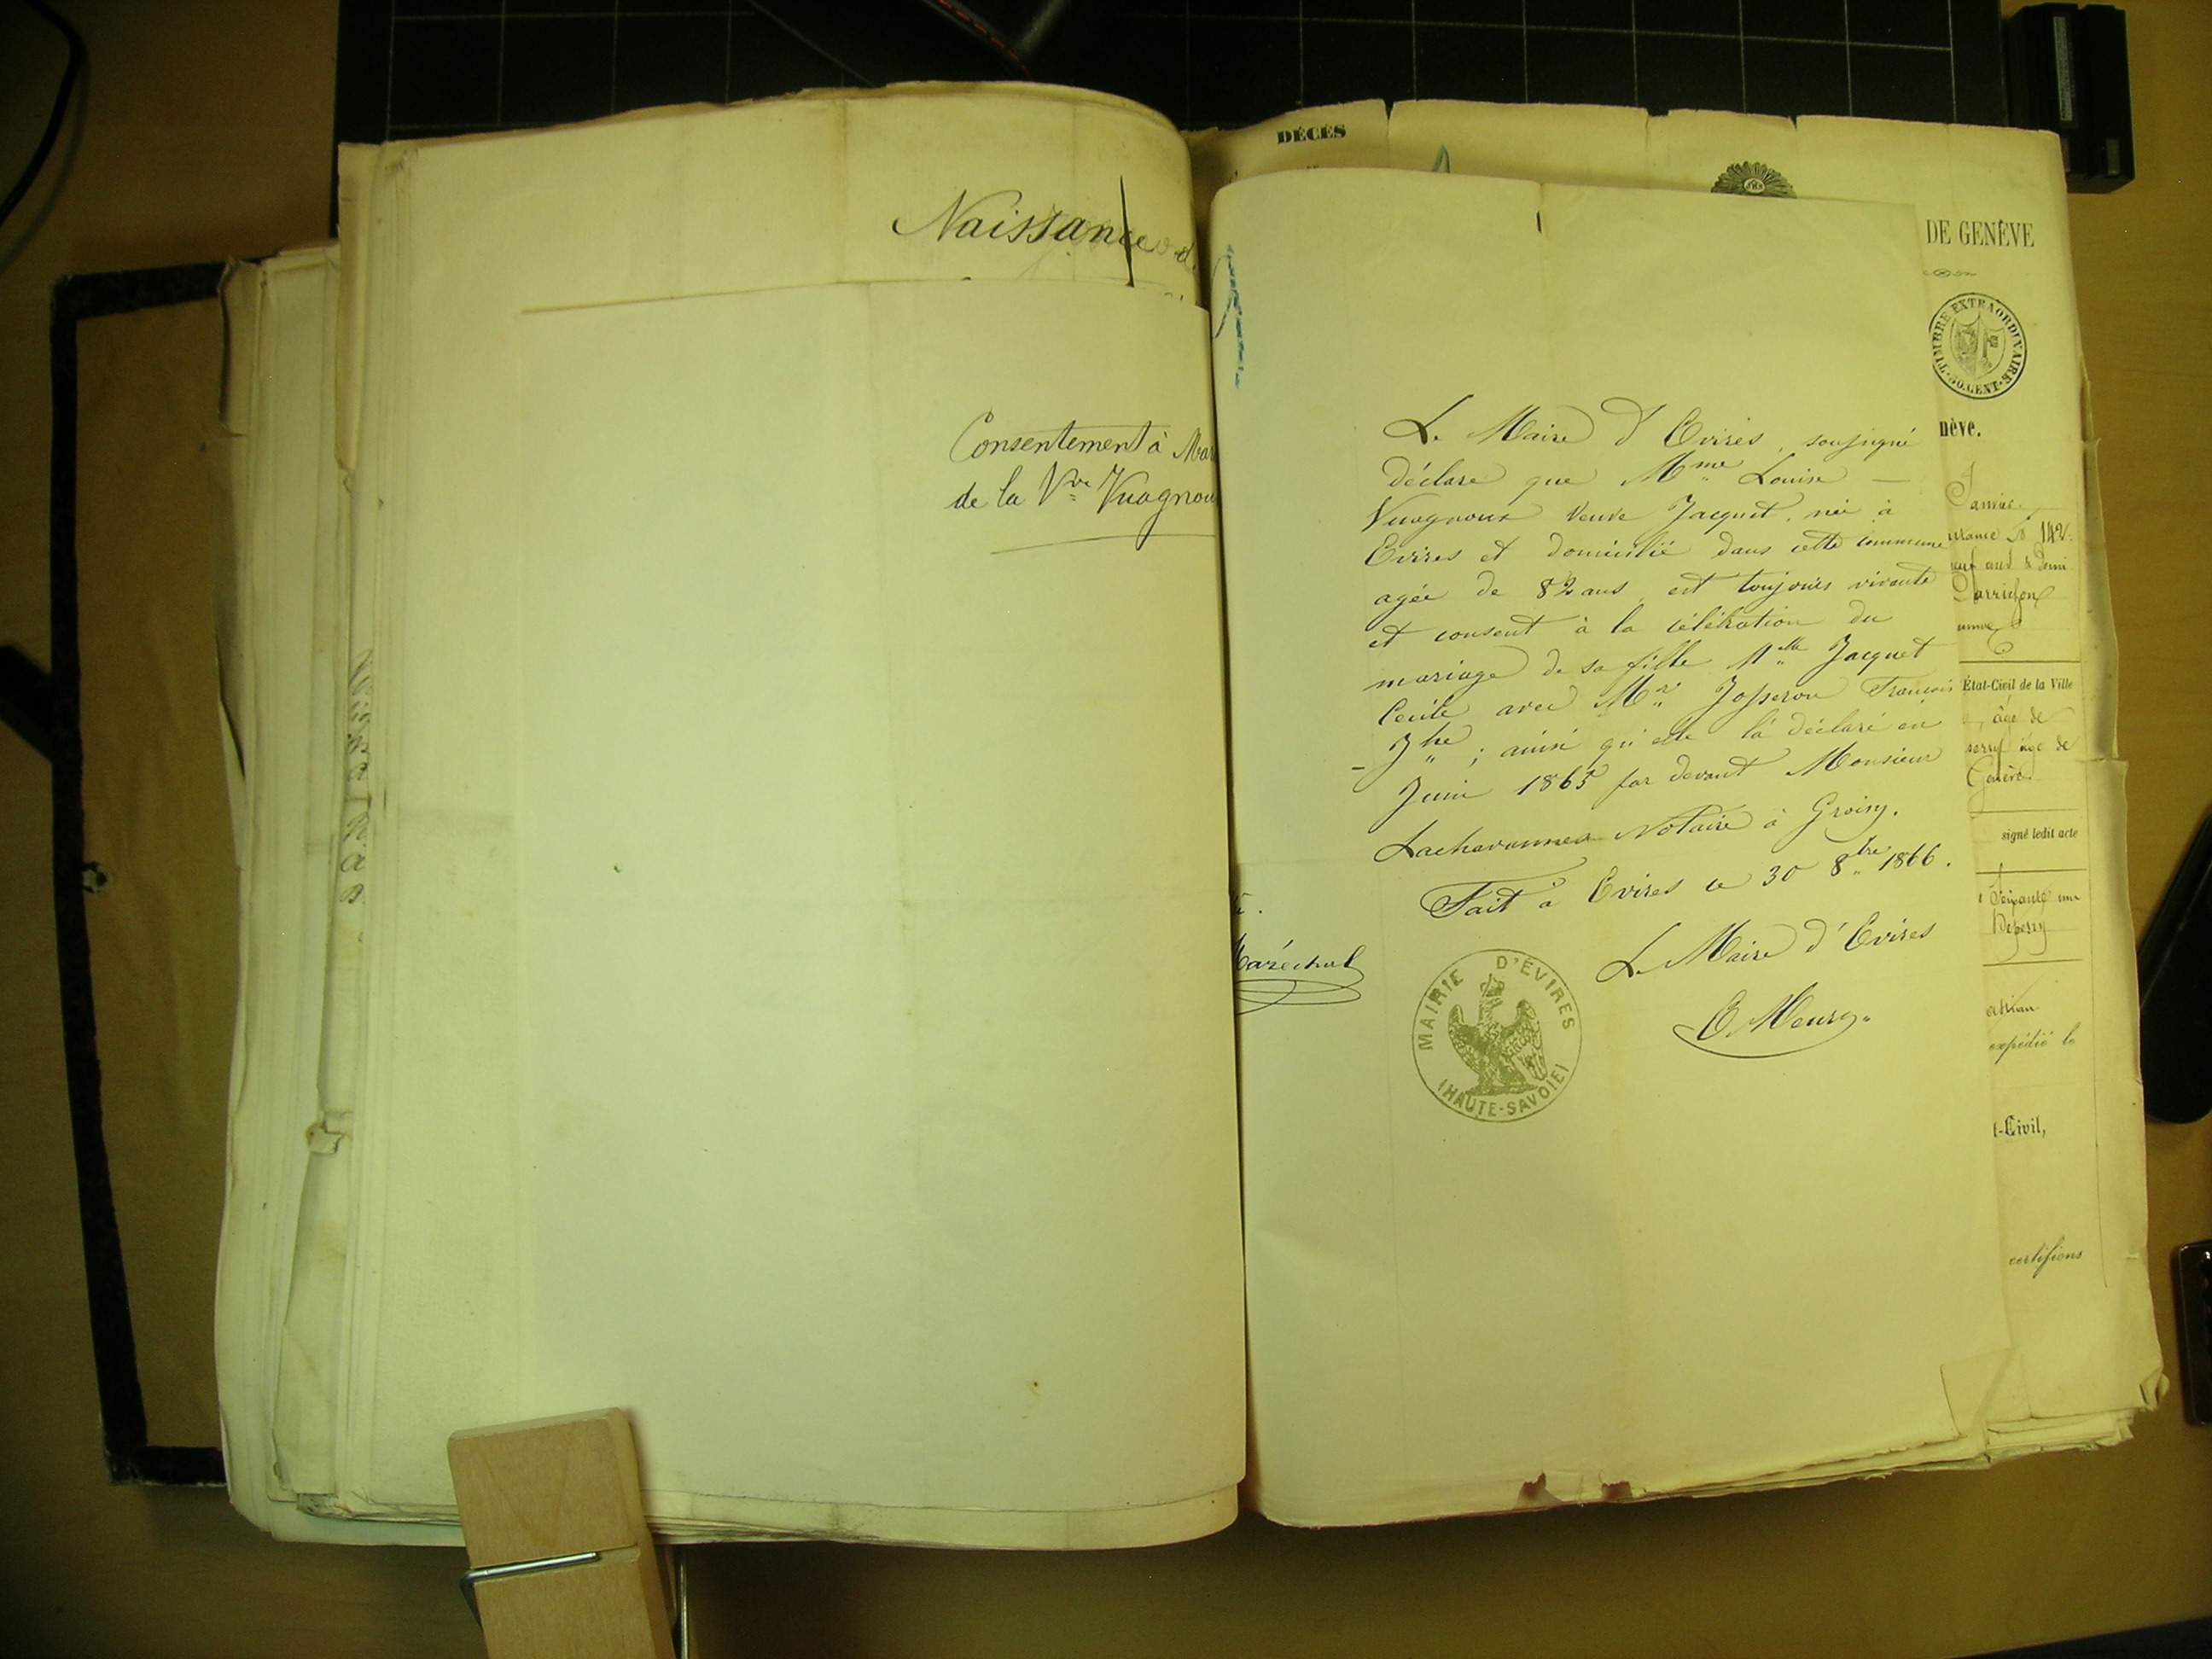 Naissance de
Consentement à Mar
de la Vve Vuagnou
DÉCÈS
Le Maire d'Evires, soussigné
déclare que Mme Louise —
Vuagnoux Veuve Jacquet, née à
Evires et domicilié dans cette commune
agée de 82 ans, est toujours vivante
et consent à la célébration du
mariage de sa fille Melle Jacquet
Cécile avec Mr Josseron François
Jhe ; ainsi qu'elle la déclaré en
Juin 1865 par devant Monsieur
Lachavannes Notaire à Groisy.
Fait à Evires ce 30 8bre 1866.
Le Maire d'Evires
MAIRIE D'ÉVIRES
(HAUTE-SAVOIE)
Maréchal
DE GENÈVE
TIMBRE EXTRAORDINAIRE
50. CENT.
nève.
142
État-Civil de la Ville
âgé de
âgé de
Genève
signé ledit acte
expédié le
t-Civil,
certifions